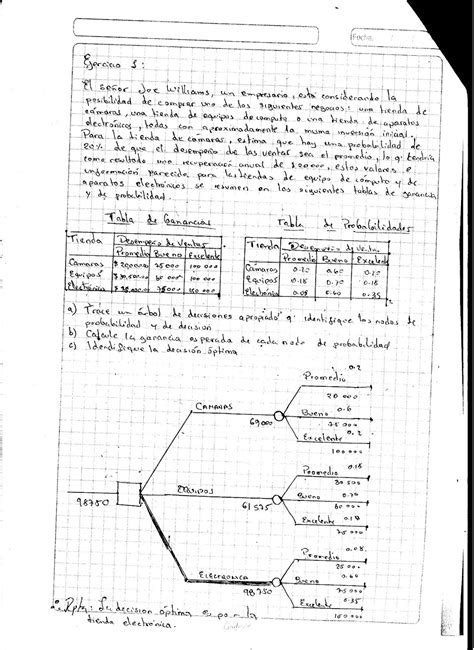 Fecha:
Ejercicio 1:
El señor Joe Williams, un empresario, está considerando la
posibilidad de comprar uno de los siguientes negocios: una tienda de
cámaras, una tienda de equipos de computo o una tienda de aparatos
electrónicos, todas con aproximadamente la misma inversión inicial.
Para la tienda de camaras, estima que hay una probabilidad de
20% de que el desempeño de las ventas sea el promedio, lo q' tendría
como resultado una recuperación anual de $20000, estos valores e
información parecida para las tiendas de equipo de cómputo y de
aparatos electrónicos se resumen en las siguientes tablas de ganancia
y de probabilidad.
Tabla de Ganancias
Tabla de Probabilidades
Tienda Desempeño de Ventas
Promedio Bueno Excelente
Cámaras $20000 75000 100 000
Equipos 60 000 100 000
Electrónica 75000
Tienda Desempeño de Ventas
Promedio Bueno Excelente
Cámaras 0.20 0.60 0.20
Equipos 0.18 0.70
Electrónica 0.05 0.60 0.35
a) Trace un árbol de decisiones apropiado q' identifique los nodos de
probabilidad y de decisión
b) Calcule la ganancia esperada de cada nodo de probabilidad
c) Identifique la decisión óptima
0.2
Promedio
20 000
CAMARAS
69000
Bueno 0.6
75 000
Excelente 0.2
100 000
Promedio
30 500
98750
Equipos
61 575
Bueno 0.70
60 000
Excelente
75 000
Promedio
25 000
ELECTRONICA
98 750
Bueno 0.60
75 000
Excele 0.35
Rpta: La decision óptima es por la
tienda electrónica.